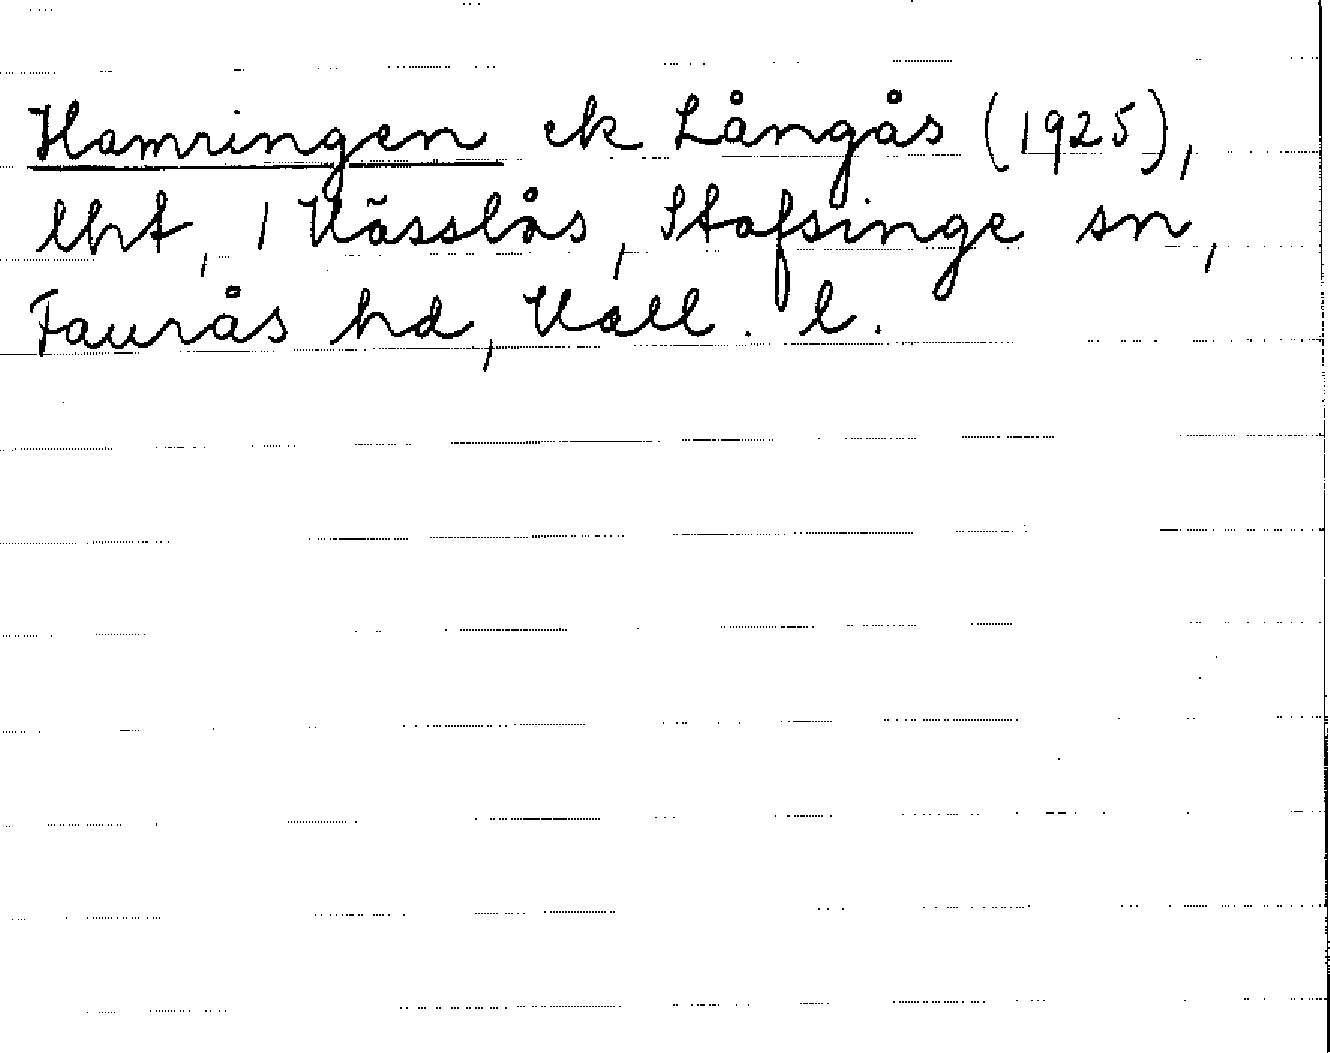 Hamringen ek Långås (1925),
lht, 1 Hässlås, Stafsinge sn,
Faurås hd, Hall. l.